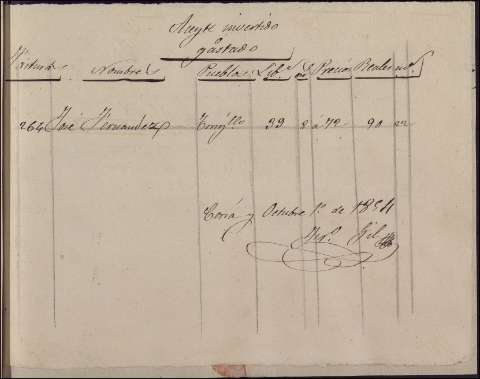 Aceyte invertido
gastado
Factura Nombre Pueblos Lib.s on Precio Reales m.s
264 José Fernandez Torrj.llo 39 8 á 72 90 22
Coria y Octubre 1º. de 1854
Gil